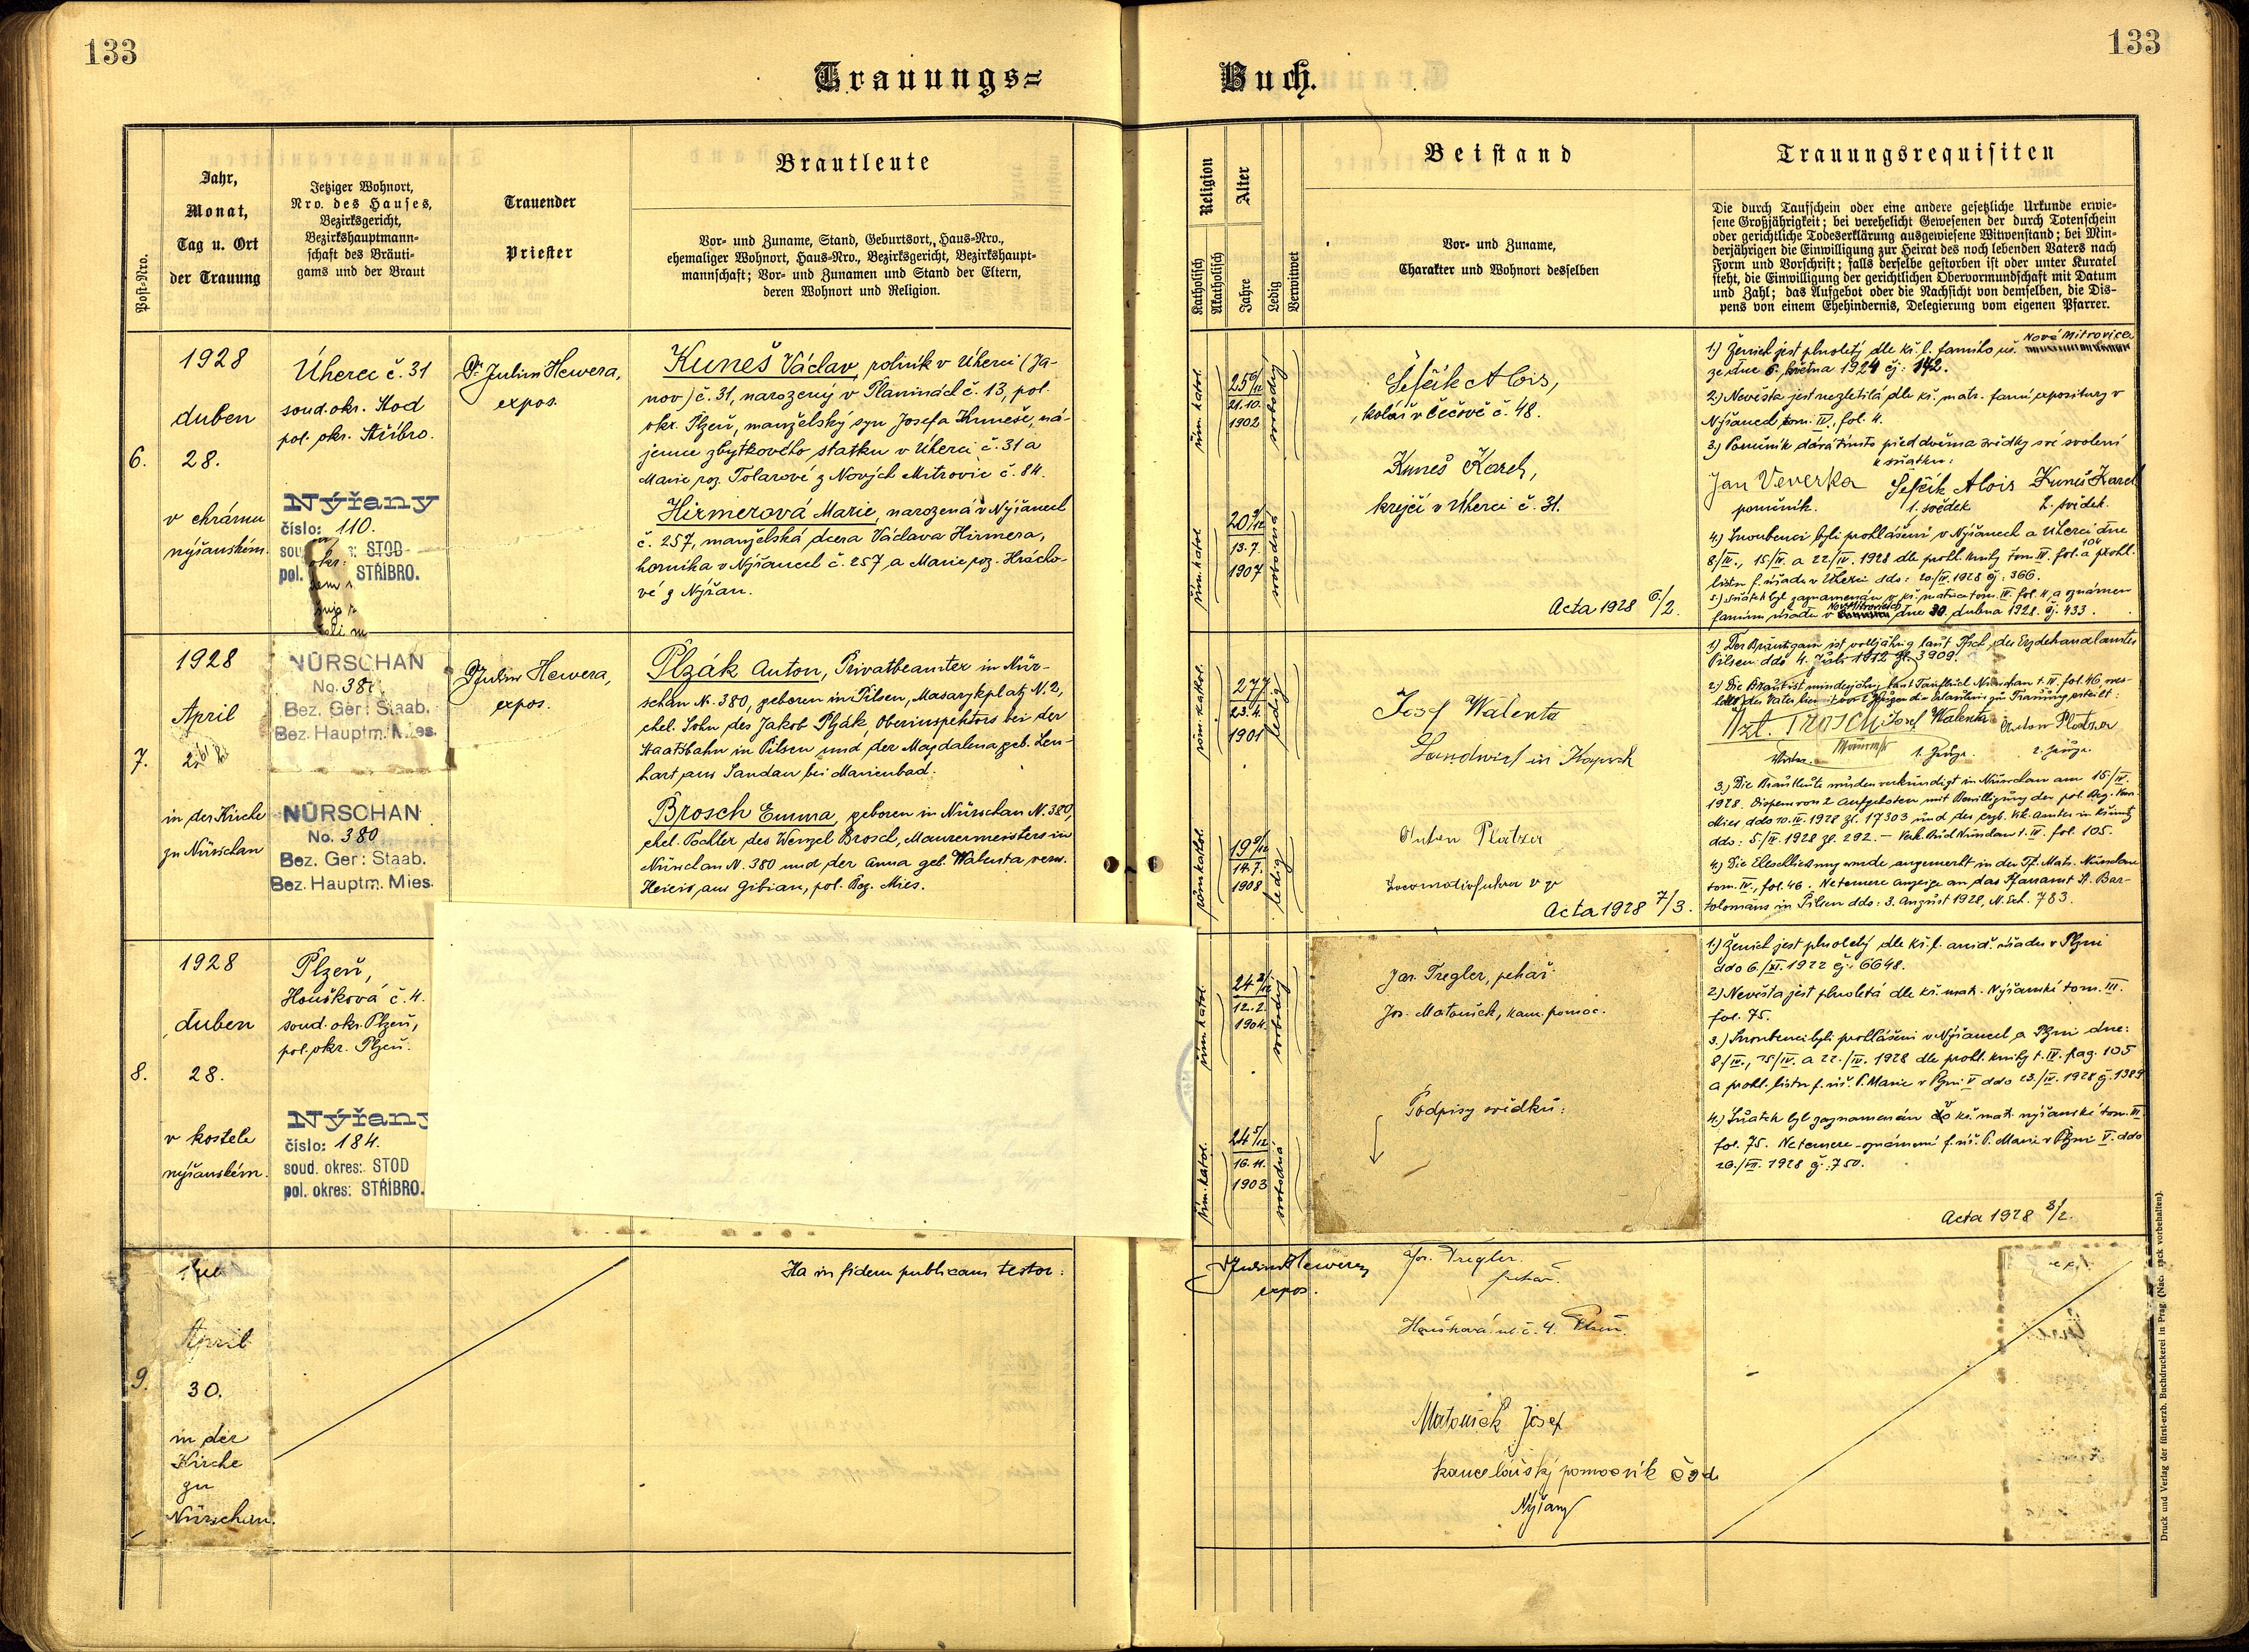 133
133
Trauungs=
Buch.
Post-Nro.
Jahr,
Monat,
Tag u. Ort
der Trauung
Jetziger Wohnort,
Nro. des Hauses,
Bezirksgericht,
Bezirkshauptmann-
schaft des Bräuti-
gams und der Braut
Trauender
Priester
Brautleute
Vor- und Zuname, Stand, Geburtsort, Haus-Nro.,
ehemaliger Wohnort, Haus-Nro., Bezirksgericht, Bezirkshaupt-
mannschaft; Vor- und Zunamen und Stand der Eltern,
deren Wohnort und Religion.
Religion
Katholisch
Akatholisch
Alter
Jahre
Ledig
Verwitwet
Beistand
Vor- und Zuname,
Charakter und Wohnort desselben
Trauungsrequisiten
Die durch Taufschein oder eine andere gesetzliche Urkunde erwie-
sene Großjährigkeit; bei verehelicht Gewesenen der durch Totenschein
oder gerichtliche Todeserklärung ausgewiesene Witwenstand; bei Min-
derjährigen die Einwilligung zur Heirat des noch lebenden Vaters nach
Form und Vorschrift; falls derselbe gestorben ist oder unter Kuratel
steht, die Einwilligung der gerichtlichen Obervormundschaft mit Datum
und Zahl; das Aufgebot oder die Nachsicht von demselben, die Dis-
pens von einem Ehehindernis, Delegierung vom eigenen Pfarrer.
6.
1928
duben
28.
v chrámu
nýřanském.
Úherce č. 31
soud. okr. Stod
pol. okr. Stříbro.
Nýřany
číslo: 110.
STOD
pol. STŘÍBRO.
Dr. Julius Hewera,
expos.
Kuneš Václav, rolník v Úherci (Ja-
nov) č. 31, narozený v Planinách č. 13, pol.
okr. Plzeň, manželský syn Josefa Kuneše, ná-
jemce zbytkového statku v Úherci č. 31 a
Marie roz. Tolarové z Nových Mitrovic č. 84.
Hirmerová Marie, narozená v Nýřanech
č. 257, manželská dcera Václava Hirmera,
horníka v Nýřanech č. 257, a Marie roz. Hrácho-
vé z Nýřan.
řím. katol.
25 6/12
21. 10.
1902
svobodný
řím. katol.
20 9/12
13. 7.
1907
svobodná
Šefčík Alois,
kolář v Čečově č. 48.
Kuneš Karel,
krejčí v Úherci č. 31.
Acta 1928 6./2.
Nové Mitrovice
1.) Ženich jest plnoletý dle kř. l. farního úř.
ze dne 6. května 1924 čj: 142.
2.) Nevěsta jest nezletilá dle kř. matr. farní expositury v
Nýřanech tom. IV., fol. 4.
3.) Poručník dává tímto před dvěma svědky své svolení
k sňatku:
Jan Veverka Šefčík Alois Kuneš Karel
poručník. 1. svědek 2. svědek.
4.) Snoubenci byli prohlášeni v Nýřanech a Úherci dne
8/IV., 15/IV. a 22/IV. 1928 dle prohl. knihy tom. IV. fol. 104 a prohl.
listu f. úřadu v Úherci ddo: 20/IV. 1928 čj: 366.
5.) Sňatek byl zaznamenán v kř. matrice tom. IV. fol. 4. a oznámen
farnímu úřadu v Nov. Mitrovicích dne 30. dubna 1928. čj. 433.
7.
1928
April
in der Kirche
zu Nürschan
NÜRSCHAN
No. 38
Bez. Ger: Staab.
Bez. Hauptm. Mies.
NÜRSCHAN
No. 380
Bez. Ger: Staab.
Bez. Hauptm. Mies.
Dr Julius Hewera,
expos.
Plzák Anton, Privatbeamter in Nür-
schan N. 380, geboren in Pilsen, Masarykplatz N. 2,
ehel. Sohn des Jakob Plzák, Oberinspektors bei der
Staatsbahn in Pilsen und der Magdalena geb. Len-
hart aus Sandau bei Marienbad.
Brosch Emma, geboren in Nürschan N. 380,
ehel. Tochter des Wenzel Brosch, Maurermeisters in
Nürschan N. 380 und der Anna geb. Walenta verw.
aus Gibian, pol. Bez. Mies.
röm. kathol.
27
23. 4.
1901
ledig
röm. kathol.
19 9/12
14. 7.
1908
ledig
Josef Walenta
Landwirt in
Anton Platzer
Acta 1928 7/3.
1.) Der Bräutigam ist volljährig laut
Pilsen ddo 4. Juli 1912 Zl. 3909.
2.) Die Braut ist minderjährig laut Taufbuch Nürschan t. IV. fol. 46,
Josef Walenta Anton Platzer
1. Zeuge. 2. Zeuge.
3.) Die Brautleute wurden verkündigt in Nürschan am 15/IV.
1928. Dispens von 2 Aufgeboten mit Bewilligung der pol. Bez.
Mies ddo 10. IV. 1928 Zl. 17303 und des
ddo: 5/IV 1928 Zl. 292. – Verk. Buch Nürschan t. IV. fol. 105.
4.) Die Eheschließung wurde angemerkt in der Tf. Matr. Nürschan
tom. IV., fol. 46. Netemere Anzeige an das Pfarramt St. Bar-
tolomäus in Pilsen ddo: 3. August 1928, N. Exh. 783.
8.
1928
duben
28.
v kostele
nýřanském.
Plzeň,
Houškova č. 4.
soud. okr. Plzeň,
pol. okr. Plzeň.
Nýřany
číslo: 184.
soud. okres: STOD
pol. okres: STŘÍBRO.
řím. katol.
24 2/12
12. 2.
1904.
svobodný
řím. katol.
24 5/12
16. 4.
1903
svobodná
Jos. Tregler, pekař.
Jos. Matoušek, kanc. pomoc.
Podpisy svědků:
1.) Ženich jest plnoletý dle kř. l. arcid. úřadu v Plzni
ddo 6./XI. 1922 čj: 6648.
2.) Nevěsta jest plnoletá dle kř. matr. Nýřanské tom. III.
fol. 75.
3.) Snoubenci byli prohlášeni v Nýřanech a Plzni dne:
8/IV., 15/IV. a 22./IV. 1928 dle prohl. knihy t. IV. pag. 105
a prohl. listu f. úř. P. Marie v Plzni V ddo 23./IV. 1928 čj. 1389
4.) Sňatek byl zaznamenán v kř. matr. nýřanské tom. III.
fol. 75. Netemere-oznámení f. úř. P. Marie v Plzni V. ddo
26./VII. 1928 čj: 750.
Acta 1928 8/2.
9.
April
30.
in der
Kirche
zu
Nürschan.
Ita in fidem publicam testor:
Dr Julius Hewera,
expos.
Jos. Tregler.
pekař.
Houškova ul. č. 4. Plzeň.
Matoušek Josef
kancelářský pomocník čsd.
Nýřany
Druck und Verlag der fürst-erzb. Buchdruckerei in Prag. (Nachdruck vorbehalten).